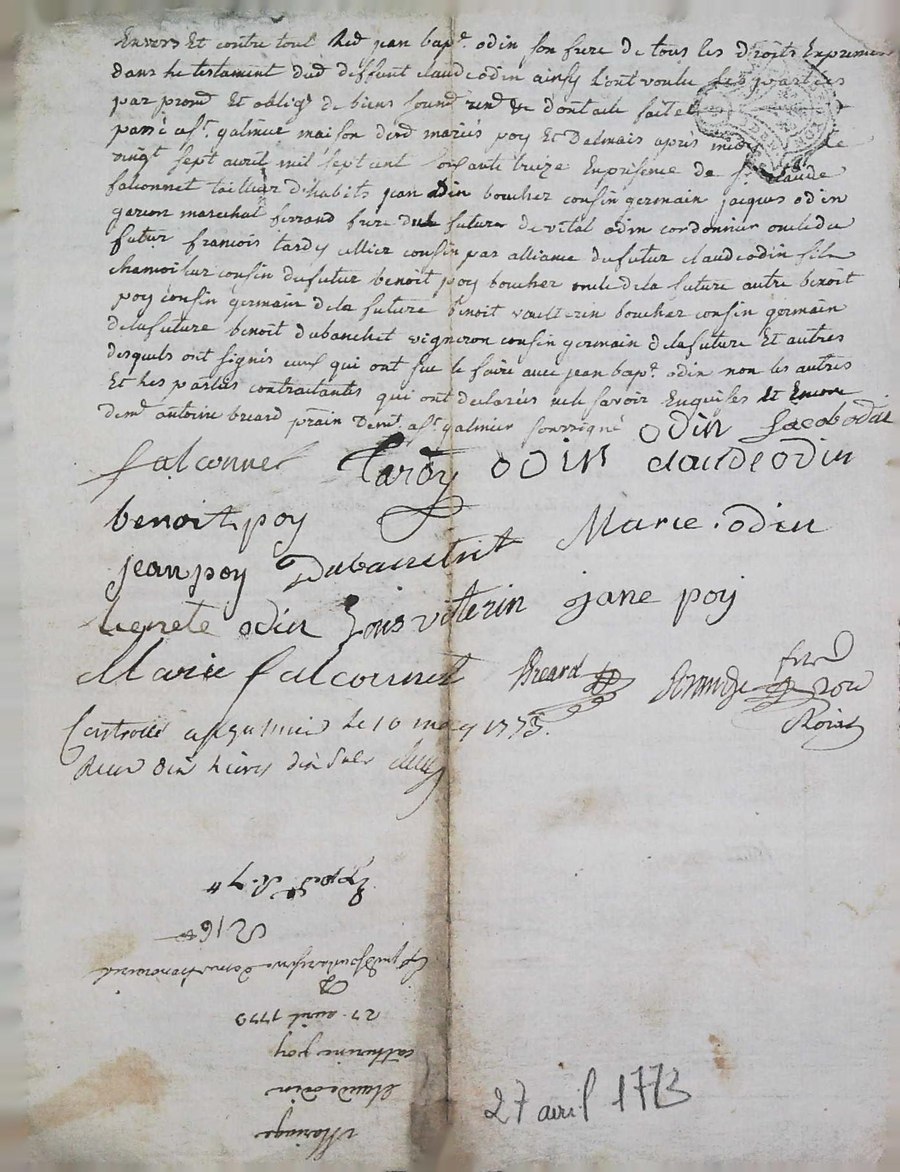 Envers Et contre tout led jean bapt. odin son frere de tous les droits Exprimes
dans le testament dud deffunt claude odin ainsy l'ont voulu les parties
par prom. Et oblig. de biens soum. ren. & dont acte fait et
passé a st. galmier maison desd mariés poy Et Dalmais apres midy le
vingt sept avril mil sept cent soixante treize En présence de sr. claude
falconnet tailleur d'habits jean odin boucher cousin germain jacques odin
garcon marechal ferrand frere dud futur de vital odin cordonnier oncle du
futur francois tardy cellier cousin par alliance du futur claude odin fils
chamoiseur cousin du futur benoit poy boucher oncle de la future autre benoit
poy cousin germain de la future benoit vaulterin boucher cousin germain
de la future benoit dubanchet vigneron cousin germain de la future Et autres
desquels ont signés ceux qui ont sçu le faire avec jean bapt. odin non les autres
Et les parties contraitantes qui ont declarés ne le savoir Enquises Et Encore
antoine breard demt. a st. galmier soussigné odin Jacob odin
falconnet tardy odin claude odin
benoit poy Marie odin
jean poy Dubanchet
odin viterin jane poy
Marie falconnet Breard
Controllé a st galmier le 10 may 1773.
Recu dix livres dix sols
Mariage
claude odin
catherine poy
27 avril 1773
27 avril 1773